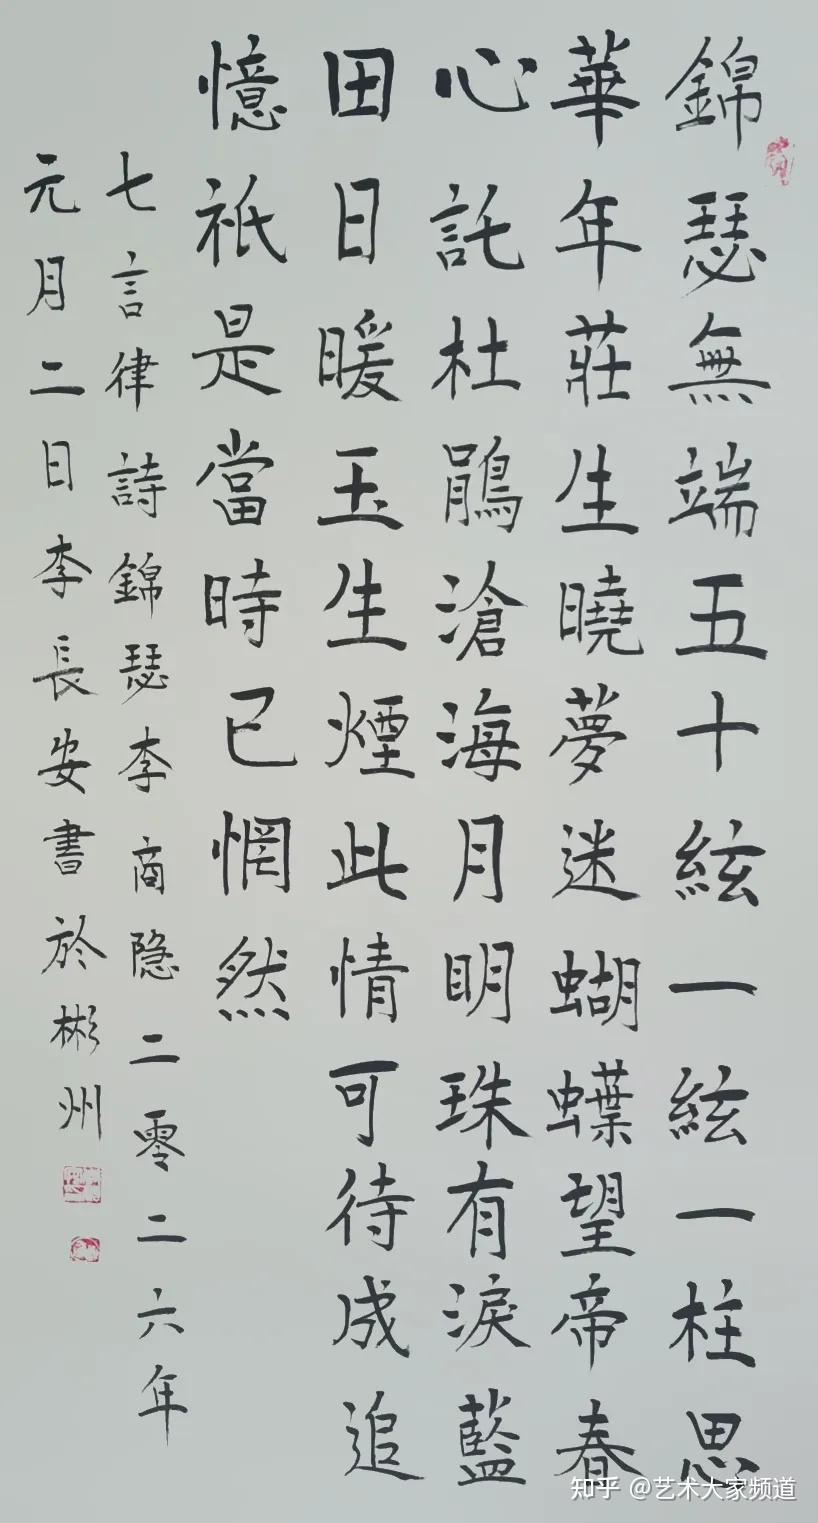 錦瑟無端五十絃一絃一柱思
華年莊生曉夢迷蝴蝶望帝春
心託杜鵑滄海月明珠有淚藍
田日暖玉生煙此情可待成追
憶祇是當時已惘然
七言律詩錦瑟李商隐二零二六年
元月二日李長安書於彬州
知乎 @艺术大家频道